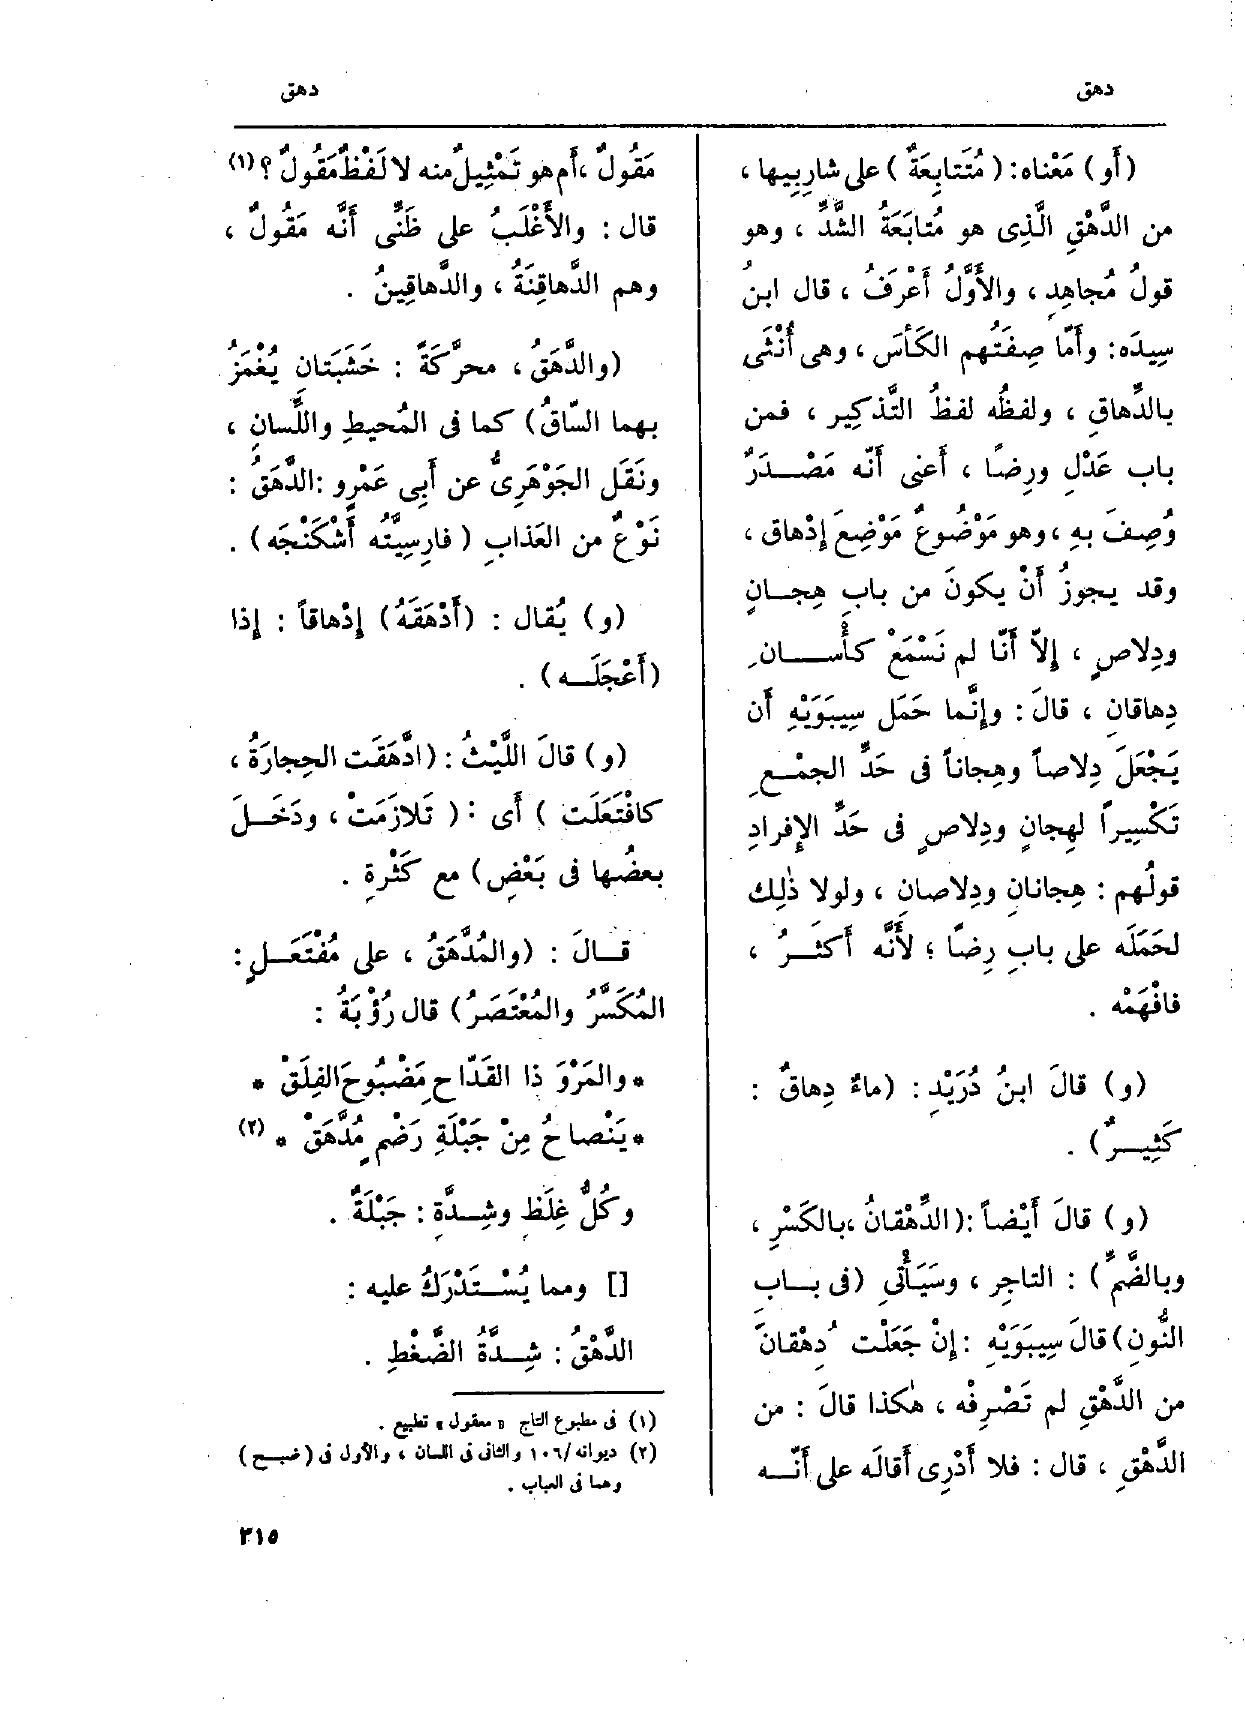 دهق
دهق
(أَو) مَعْناه: (مُتَتابِعَةٌ) على شارِبِيها،
من الدَّهْقِ الَّذِى هو مُتابَعَةُ الشَّدِّ، وهو
قولُ مُجاهِدٍ، والأَوَّلُ أَعْرَفُ، قال ابنُ
سِيدَه: وأَمّا صِفَتُهم الكَأْسَ، وهى أُنْثَى
بالدِّهاقِ، ولفظُه لفظُ التَّذكِيرِ، فمن
باب عَدْلٍ ورِضًا، أَعنى أَنّه مَصْدَرٌ
وُصِفَ بهِ، وهو مَوْضُوعٌ مَوْضِعَ إِدْهاق،
وقد يجوزُ أَنْ يكونَ من بابِ هِجانٍ
ودِلاصٍ، إِلاّ أَنّا لم نَسْمَعْ كأْسانِ
دِهاقانِ، قالَ: وإِنَّما حَمَل سِيبَوَيْهِ أَن
يَجْعَلَ دِلاصاً وهِجاناً فى حَدِّ الجمْعِ
تَكْسِيراً لهِجانٍ ودِلاصٍ فى حَدِّ الإِفرادِ
قولُهم: هِجانانِ ودِلاصانِ، ولولا ذٰلِك
لحَمَلَه على بابِ رِضًا؛ لأَنَّه أَكثَرُ،
فافْهَمْه.
(و) قالَ ابنُ دُرَيْدٍ: (ماءٌ دِهاقٌ:
كَثِيرٌ).
(و) قالَ أَيْضاً: (الدِّهْقانُ، بالكَسْرِ،
وبالضَّمِّ): التاجِر، وسَيَأْتِى (فى بابِ
النُّونِ) قالَ سِيبَوَيْهِ: إِنْ جَعَلْت دِهْقانَ
من الدَّهْقِ لم تَصْرِفْه، هٰكذا قالَ: من
الدَّهْقِ، قال: فلا أَدْرِى أَقالَه على أَنَّه
مَقُولٌ، أَم هو تَمْثِيلٌ منه لا لَفْظٌ مَقُولٌ؟(١)
قال: والأَغْلَبُ على ظَنِّى أَنَّه مَقُولٌ،
وهم الدَّهاقِنَةُ، والدَّهاقِينُ.
(والدَّهَقُ، محرَّكَةً: خَشَبَتانِ يُغْمَزُ
بهما السّاقُ) كما فى المُحيطِ واللِّسانِ،
ونَقَل الجَوْهَرِىُّ عن أَبِى عَمْرٍو: الدَّهَقُ:
نَوْعٌ من العَذابِ (فارِسِيَّتُه أَشْكَنْجَه).
(و) يُقال: (أَدْهَقَهُ) إِدْهاقاً: إِذا
(أَعْجَلَه).
(و) قالَ اللَّيْثُ: (ادَّهَقَت الحِجارَةُ،
كافْتَعَلَت) أَى: (تَلازَمَتْ، ودَخَلَ
بعضُها فى بَعْضٍ) مع كَثْرةٍ.
قالَ: (والمُدَّهَقُ، على مُفْتَعَلٍ:
المُكَسَّرُ والمُعْتَصَرُ) قال رُؤْبَةُ:
* والمَرْوَ ذا القَدّاحِ مَضْبُوحَ الفِلَقْ *
* يَنْصاحُ مِنْ جَبْلَةِ رَضْمٍ مُدَّهَقْ * (٢)
وكُلُّ غِلَظٍ وشِدَّةٍ: جَبْلَةٌ.
[] ومما يُسْتَدْرَكُ عليه:
الدَّهْقُ: شِدَّةُ الضَّغْطِ.
(١) فى مطبوع التاج «معقول» تطبيع.
(٢) ديوانه/١٠٦ والثانى فى اللسان، والأول فى (ضبح)
وهما فى العباب.
٣١٥